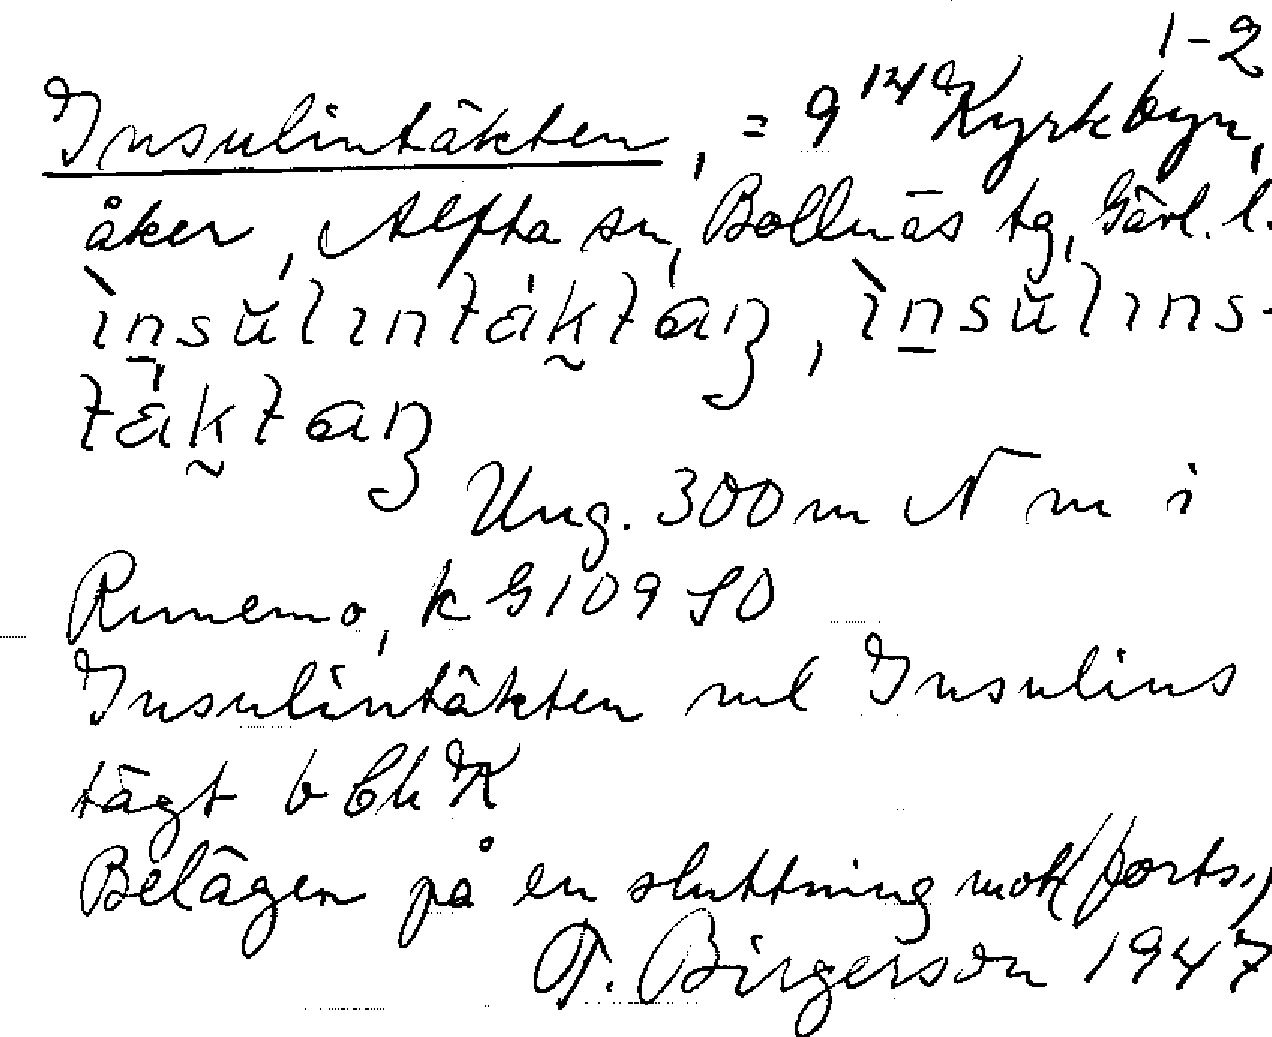 1-2
Insulintäkten, = 9¹⁴⁹ Kyrkbyn,
åker, Alfta sn, Bollnäs tg, Gävl. l.
ìnsŭlɩntáktaɳ, ìnsŭlɩns-
táktaɳ
Ung. 300 m N m i
Runemo, k G109 SO
Insulintäkten ml Insulins
tägt b Ch K
Belägen på en sluttning mot (forts.)
T. Birgerson 1947